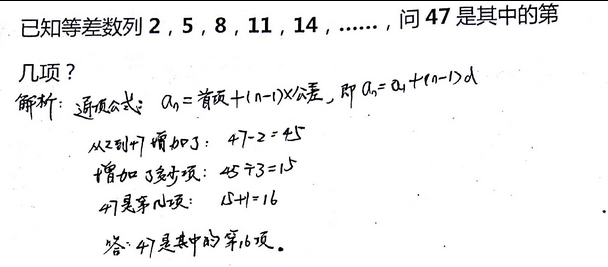 已知等差数列 2，5，8，11，14，……，问 47 是其中的第
几项？
解析：通项公式：aₙ=首项+(n-1)×公差，即 aₙ=a₁+(n-1)d
从2到47增加了：47-2=45
增加了多少项：45÷3=15
47是第几项：15+1=16
答：47是其中的第16项。